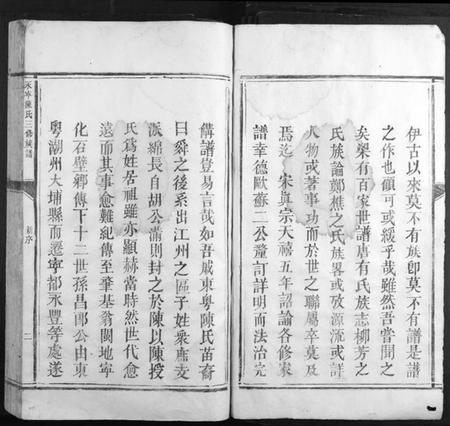 伊古以來莫不有族卽莫不有譜是譜
之作也顧可或緩乎哉雖然吾嘗聞之
矣梁有百家世譜唐有氏族志柳芳之
氏族論鄭樵之氏族畧或攷源流或詳
人物或著事功而於世之聯屬卒莫及
焉迄 宋眞宗天禧五年詔諭各修家
譜幸德歐蘇二公釐訂詳明而法治完
備譜豈易言哉如吾戚東粤陳氏苗裔
曰舜之後系出江州之區子姓衆庶支
派綿長自胡公滿則封之於陳以陳授
氏爲姓居祖雖亦顯赫當時然世代愈
遠而其事愈難紀傳至肇基翁閩地寧
化石壁鄉傳下十二世孫昌鄖公由東
粤潮州大埔縣而遷寧都永豐等處遂
永寧陳氏三修族譜
新序
二